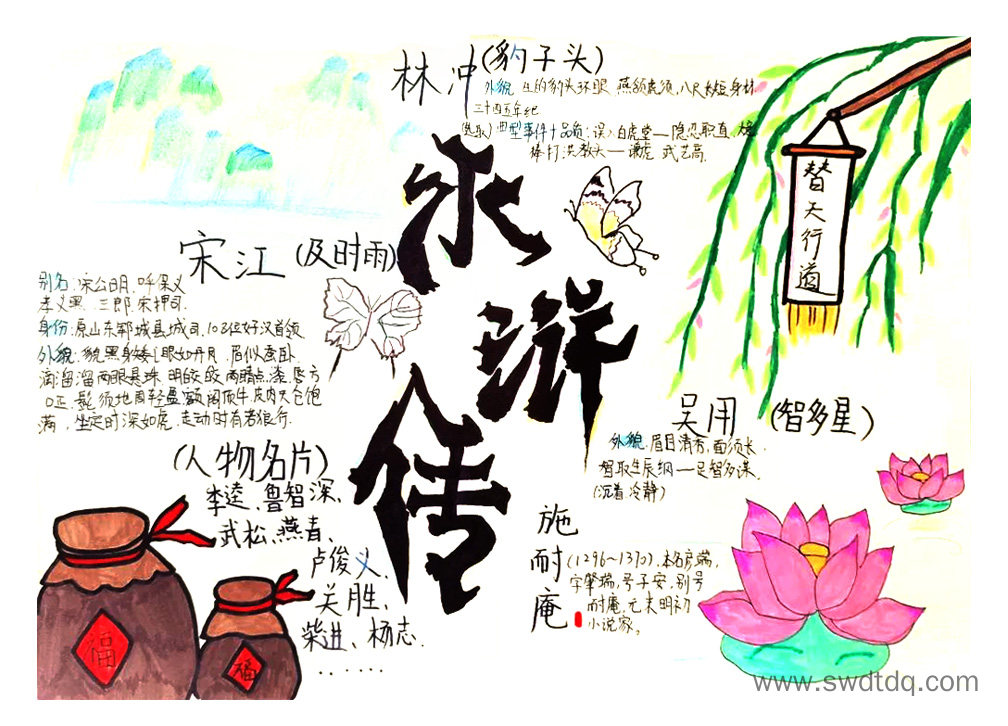 林冲(豹子头)
外貌 生的豹头环眼 燕颔虎须,八尺长短身材
三十四五年纪
(选取)典型事件+品质:误入白虎堂—隐忍职直,
棒打洪教头—谦虚 武艺高.
水浒传
替天行道
宋江(及时雨)
别名:宋公明,呼保义
孝义黑 三郎 宋押司.
身份:原山东郓城县城司.108位好汉首领
外貌:貌黑身矮,眼如丹凤,眉似蚕卧.
滴溜溜两眼悬珠.明皎皎两睛点漆.唇方
口正.髭须地阁轻盈额阔顶平皮肉天仓饱
满,坐定时深如虎,走动时有若狼行.
吴用(智多星)
外貌:眉目清秀,面须长.
智取生辰纲—足智多谋.
(沉着冷静)
(人物名片)
李逵、鲁智深、
武松、燕青、
卢俊义、
关胜、
柴进、杨志.
......
施耐庵
(1296~1370).本名彦端,
字肇端,号子安,别号
耐庵,元末明初
小说家。
福
福
www.swdtdq.com